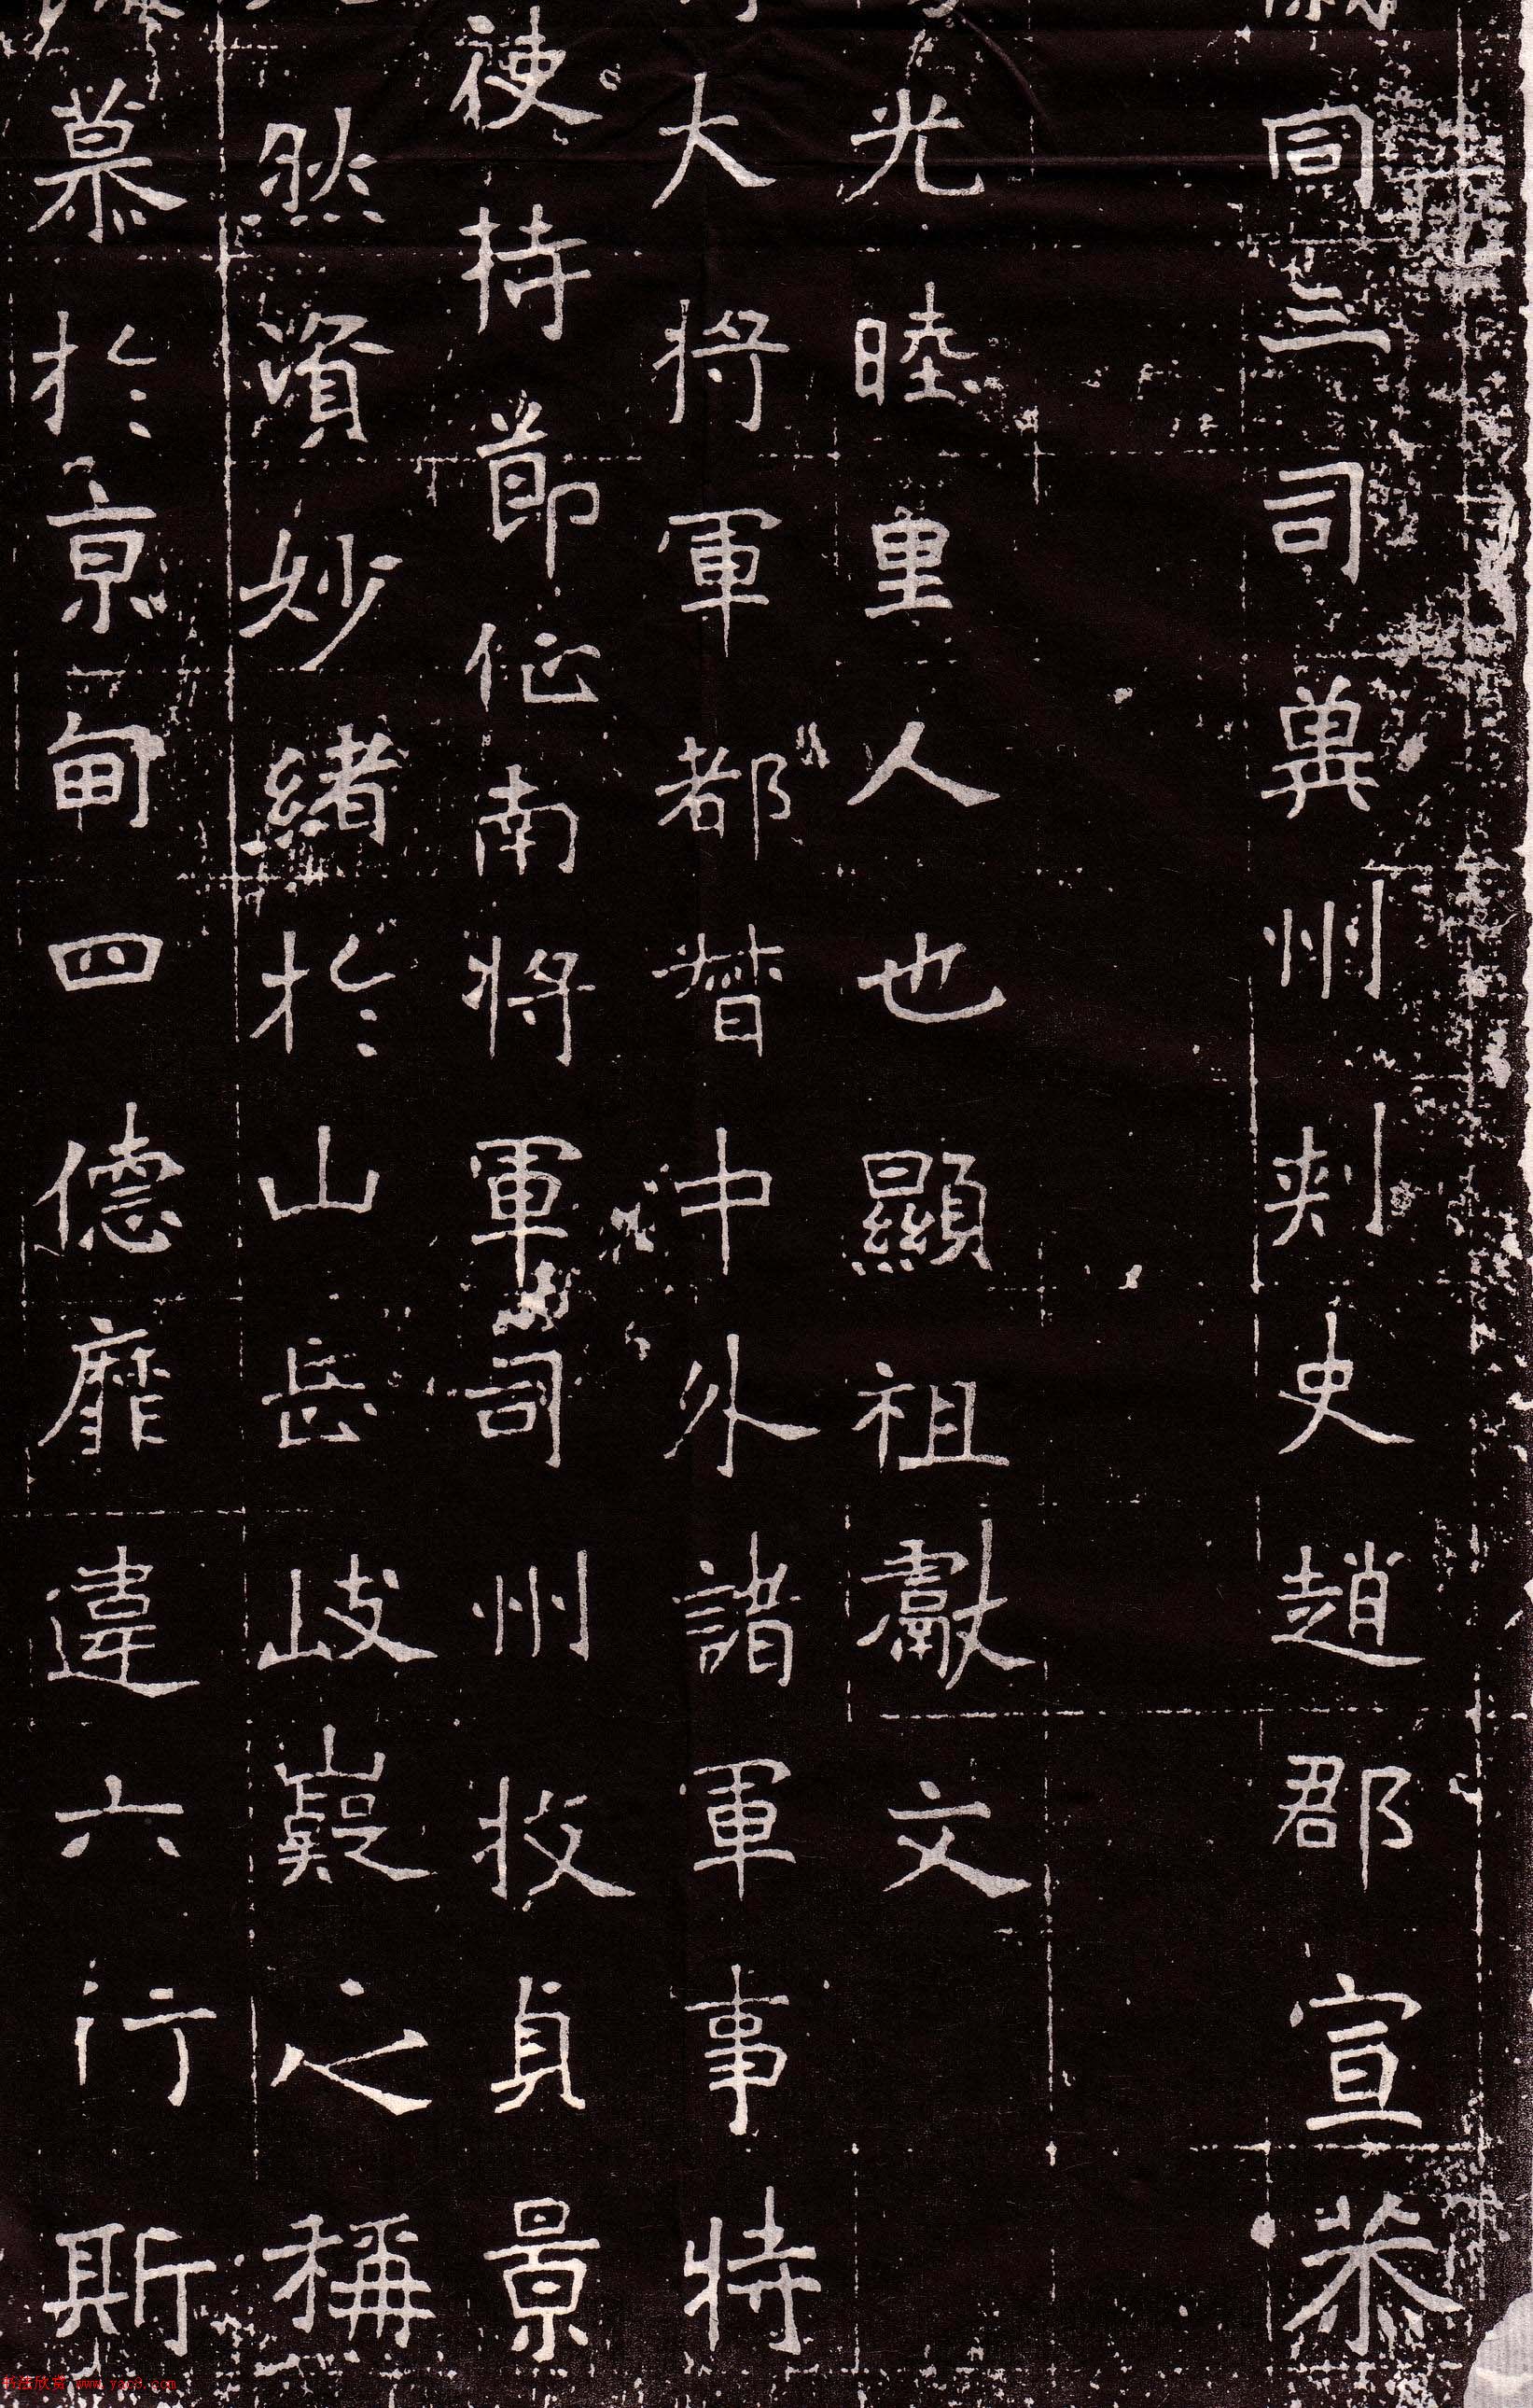 同三司冀州刾史趙郡宣恭
光睦里人也顯祖獻文
大將軍都督中外諸軍事特
使持節征南將軍司州牧貞景
然資妙緒於山岳歧嶷之稱
慕於京甸四德靡違六行斯
www.yac8.com